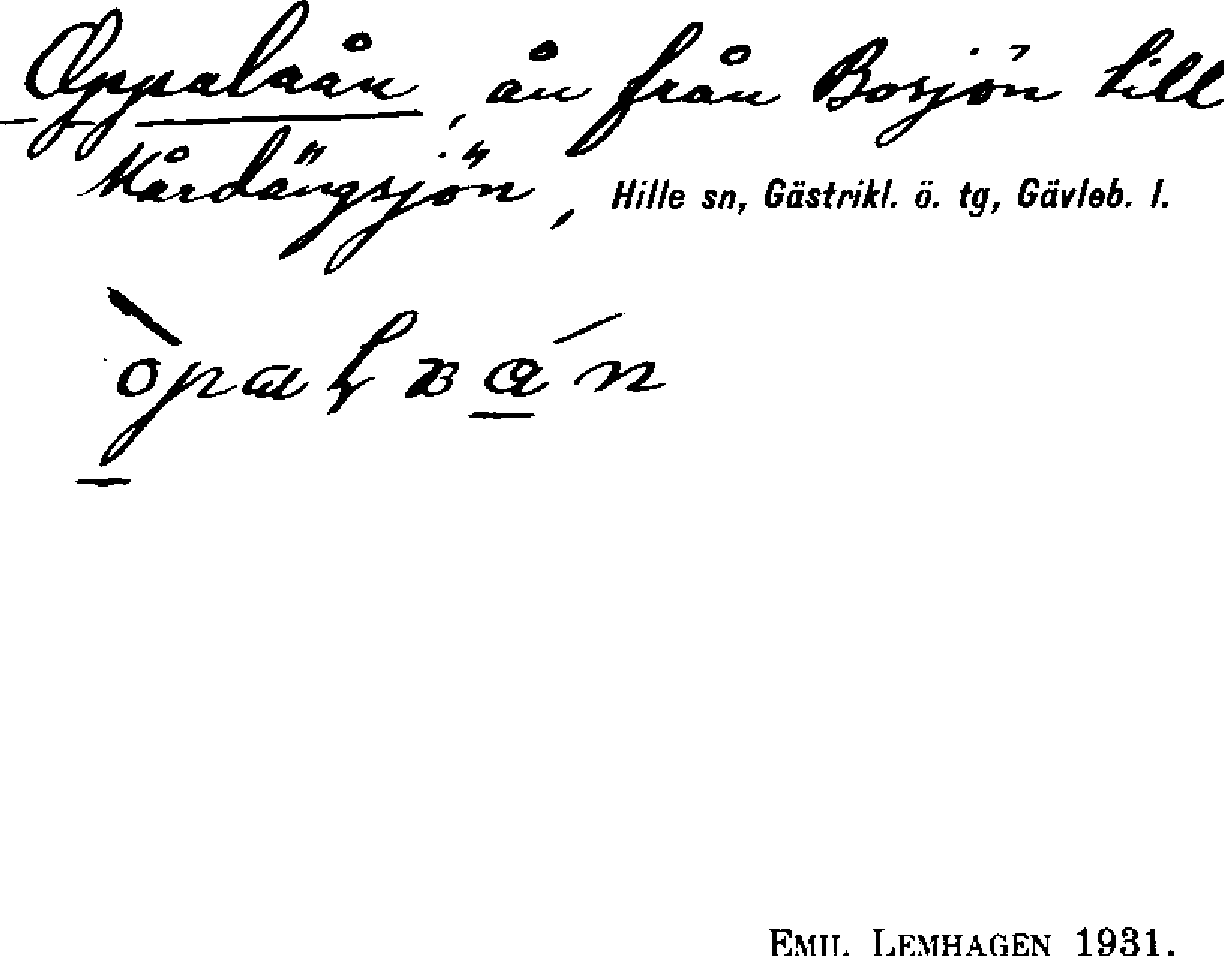 Oppalaån, ån från Bosjön till
Mårdängsjön, Hille sn, Gästrikl. ö. tg, Gävleb. l.
EMIL LEMHAGEN 1931.